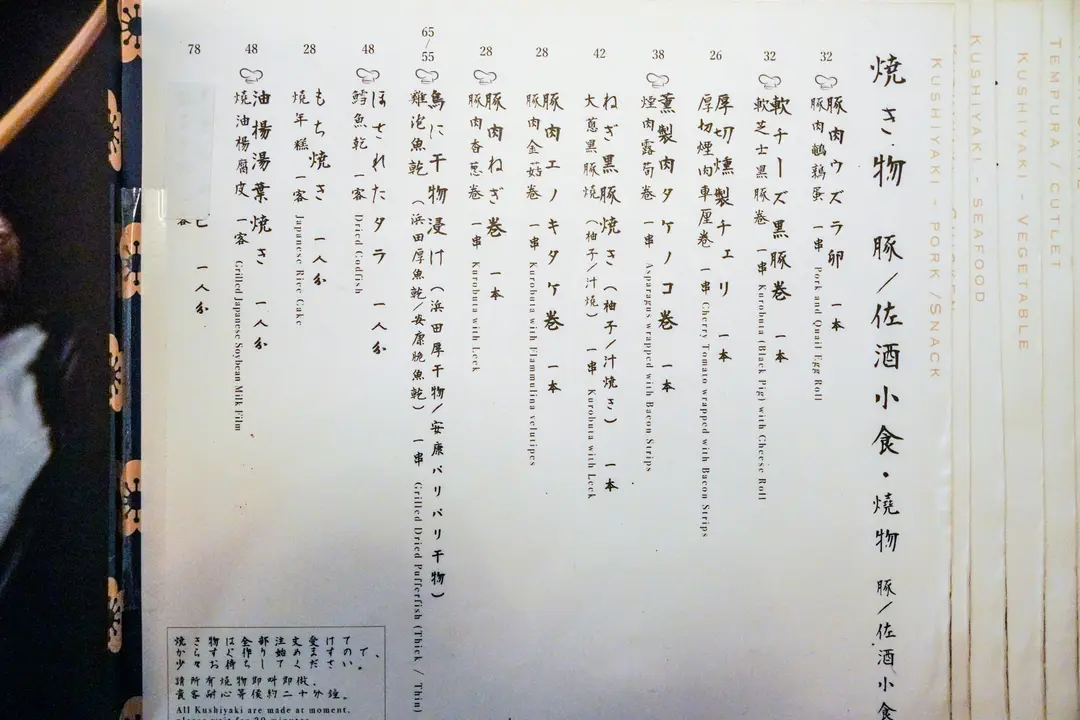 焼き物 豚/佐酒小食·燒物 豚/佐酒小食
32
豚肉ウズラ卵 一本
豚肉鵪鶉蛋 一串 Pork and Quail Egg Roll
32
軟チーズ黒豚卷 一本
軟芝士黑豚卷 一串 Kurobuta (Black Pig) with Cheese Roll
26
厚切燻製チェリ 一本
厚切煙肉車厘卷 一串 Cherry Tomato wrapped with Bacon Strips
38
薫製肉タケノコ卷 一本
煙肉露荀卷 一串 Asparagus wrapped with Bacon Strips
42
ねぎ黒豚焼き(柚子/汁焼き) 一本
大蔥黑豚燒(柚子/汁燒) 一串 Kurobuta with Leek
28
豚肉エノキタケ卷 一本
豚肉金菇卷 一串 Kurobuta with Flammulina velutipes
28
豚肉ねぎ卷 一本
豚肉香蔥卷 一串 Kurobuta with Leek
65
/
55
鳥に干物浸け(浜田厚干物/安康パリパリ干物)
雞泡魚乾(浜田厚魚乾/安康脆魚乾) 一串 Grilled Dried Pufferfish (Thick / Thin)
48
ほされたタラ 一人分
鱈魚乾 一客 Dried Codfish
28
もち焼き 一人分
燒年糕 一客 Japanese Rice Cake
48
油揚湯葉焼き 一人分
燒油楊腐皮 一客 Grilled Japanese Soybean Milk Film
78
一人分
焼き物は全部注文受けて
から すぐ作り始めますので、
少々お待ちしてください。
請所有燒物即叫即做,
貴客耐心等候約二十分鐘。
All Kushiyaki are made at moment,
KUSHIYAKI - PORK / SNACK
KUSHIYAKI - SEAFOOD
KUSHIYAKI - VEGETABLE
TEMPURA / CUTLET